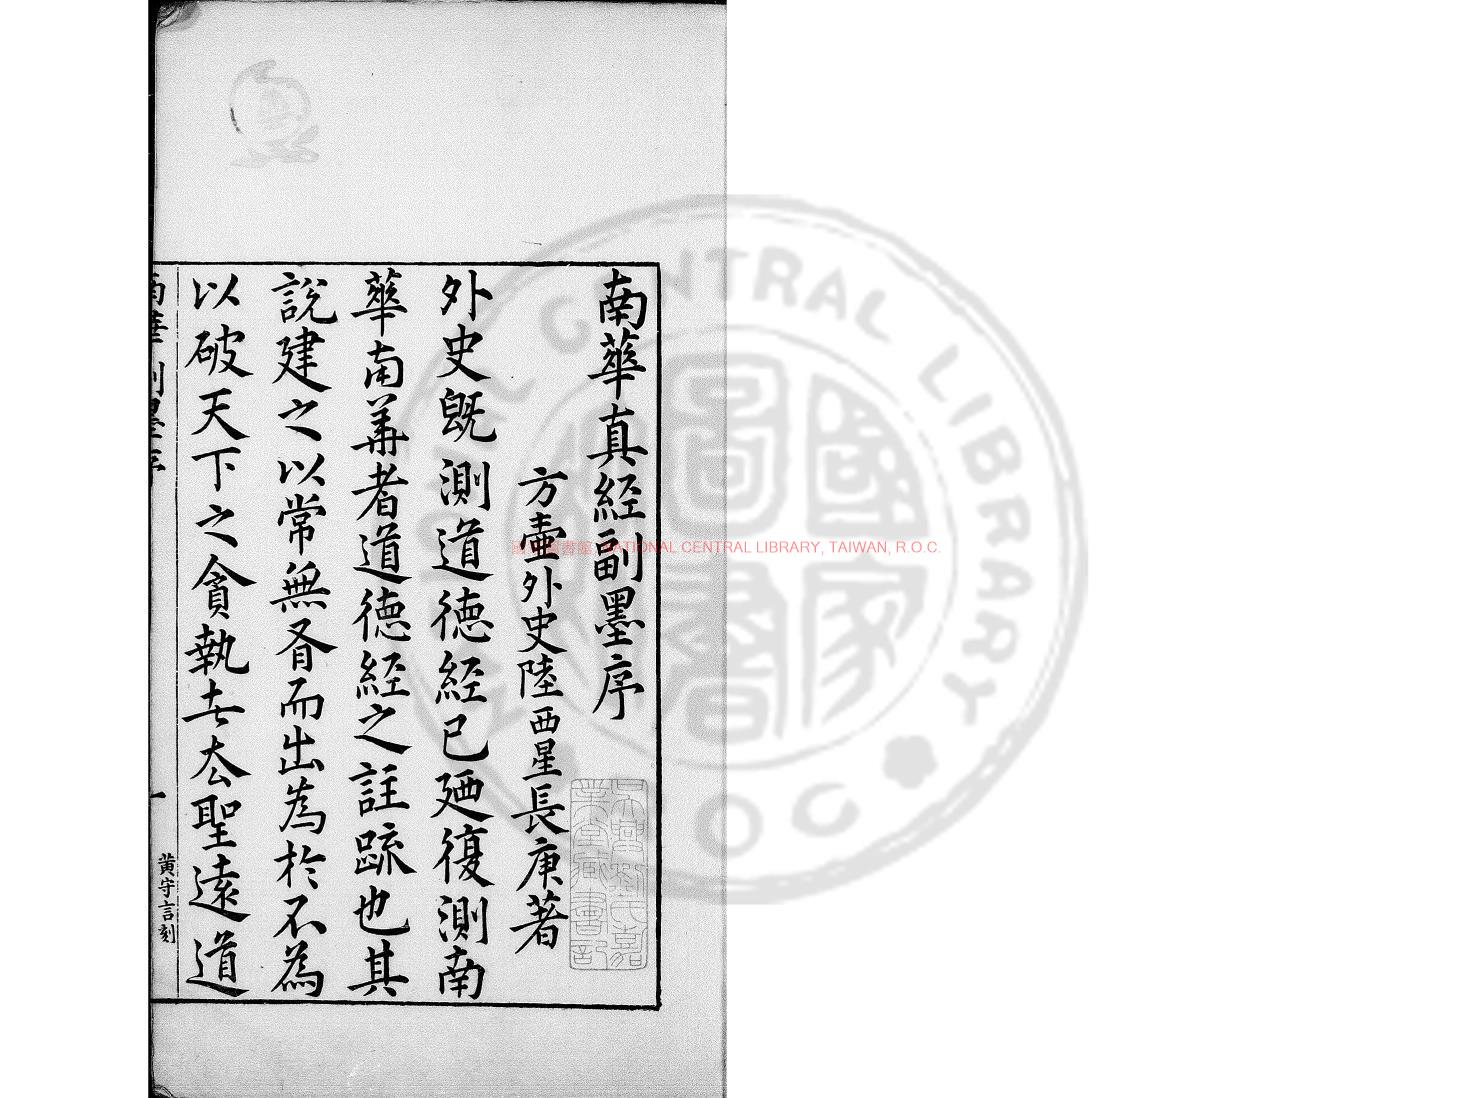 南華真經副墨序
方壺外史陸西星長庚著
外史既測道德經已廼復測南
華南華者道德經之註疏也其
說建之以常無有而出為於不為
以破天下之貪執世去聖遠道
南華副墨序
一
黃守言刻
吳興劉氏嘉
業堂藏書記
國家圖書館, NATIONAL CENTRAL LIBRARY, TAIWAN, R.O.C.
國家圖書